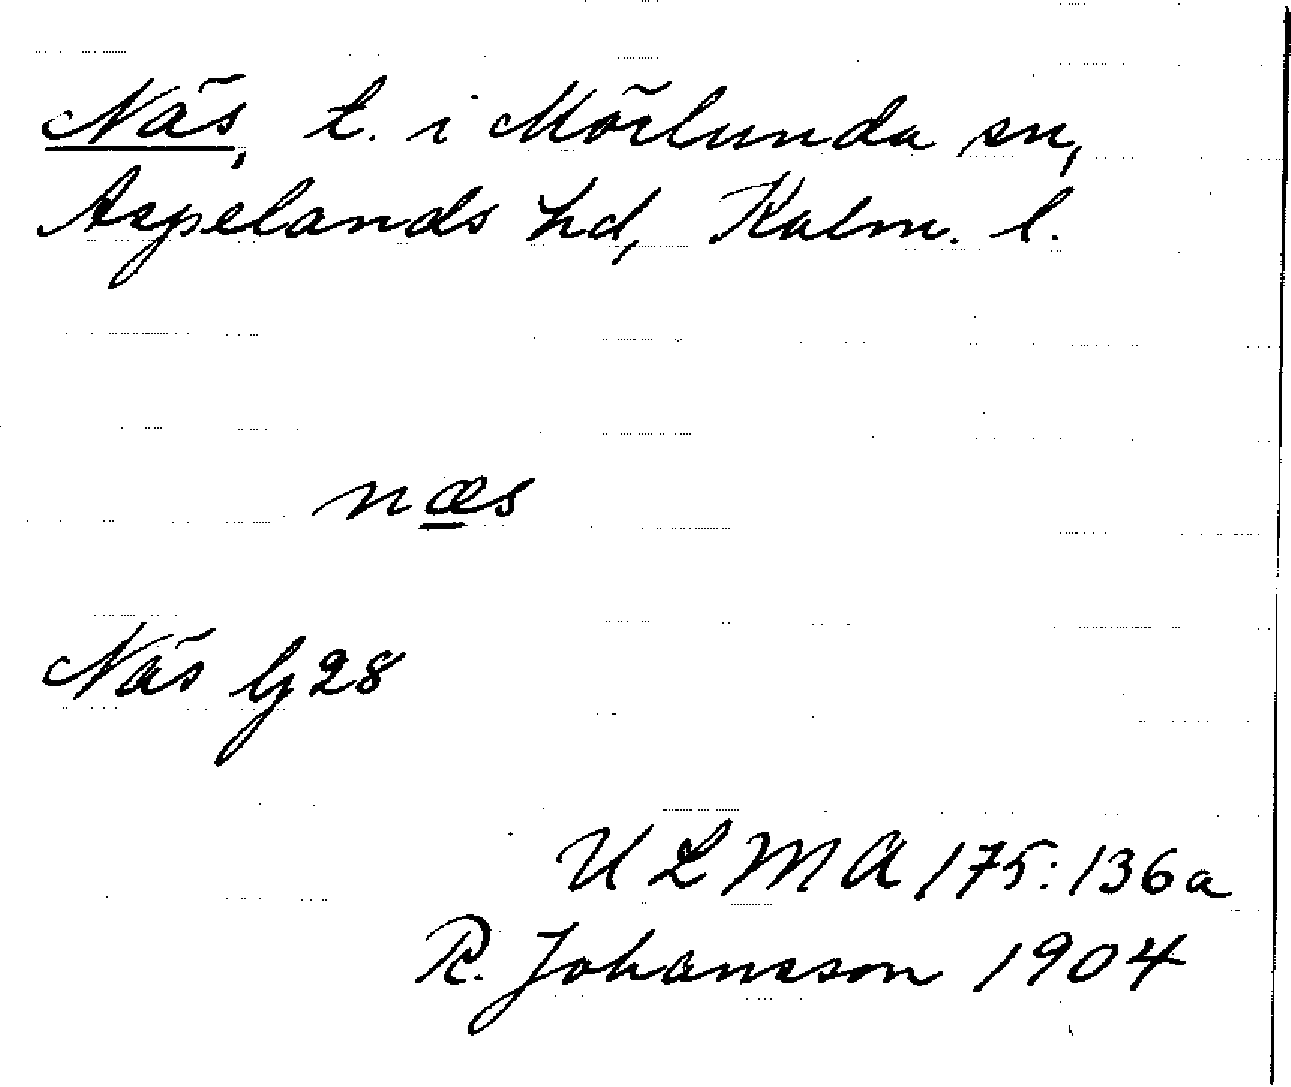 Näs, t. i Mörlunda sn,
Aspelands hd, Kalm. l.
næs
Näs Gj 28
ULMA 175:136a
R. Johansson 1904